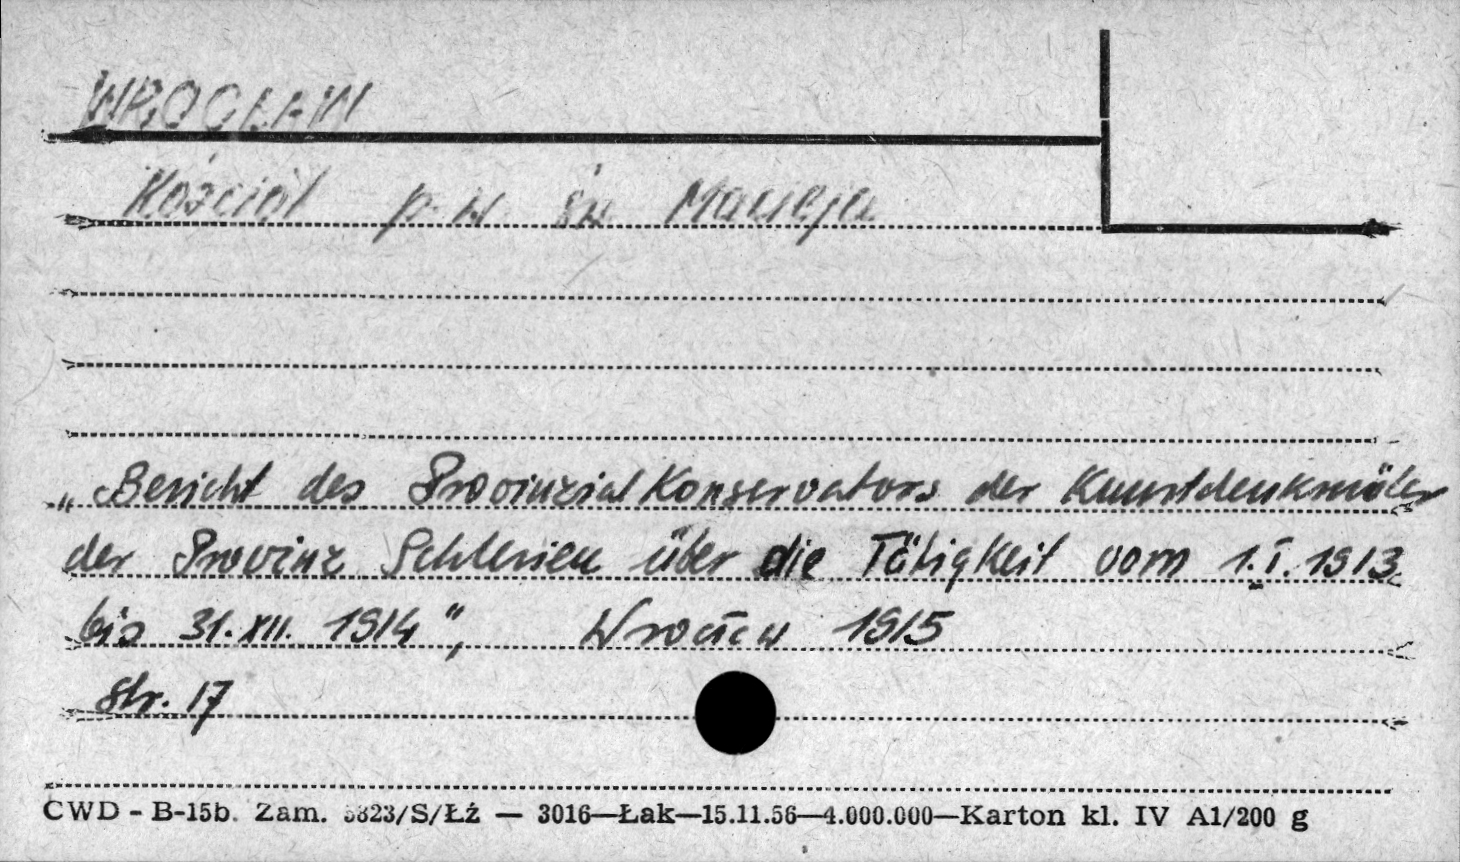 WROCŁAW
Kościół p.w. św. Macieja
„Bericht des Provinzial Konservators der Kunstdenkmäler
der Provinz Schlesien über die Tätigkeit vom 1.I.1913
bis 31.XII. 1914", Wrocław 1915
str. 17
CWD - B-15b. Zam. 5823/S/Łź — 3016—Łak—15.11.56—4.000.000—Karton kl. IV A1/200 g